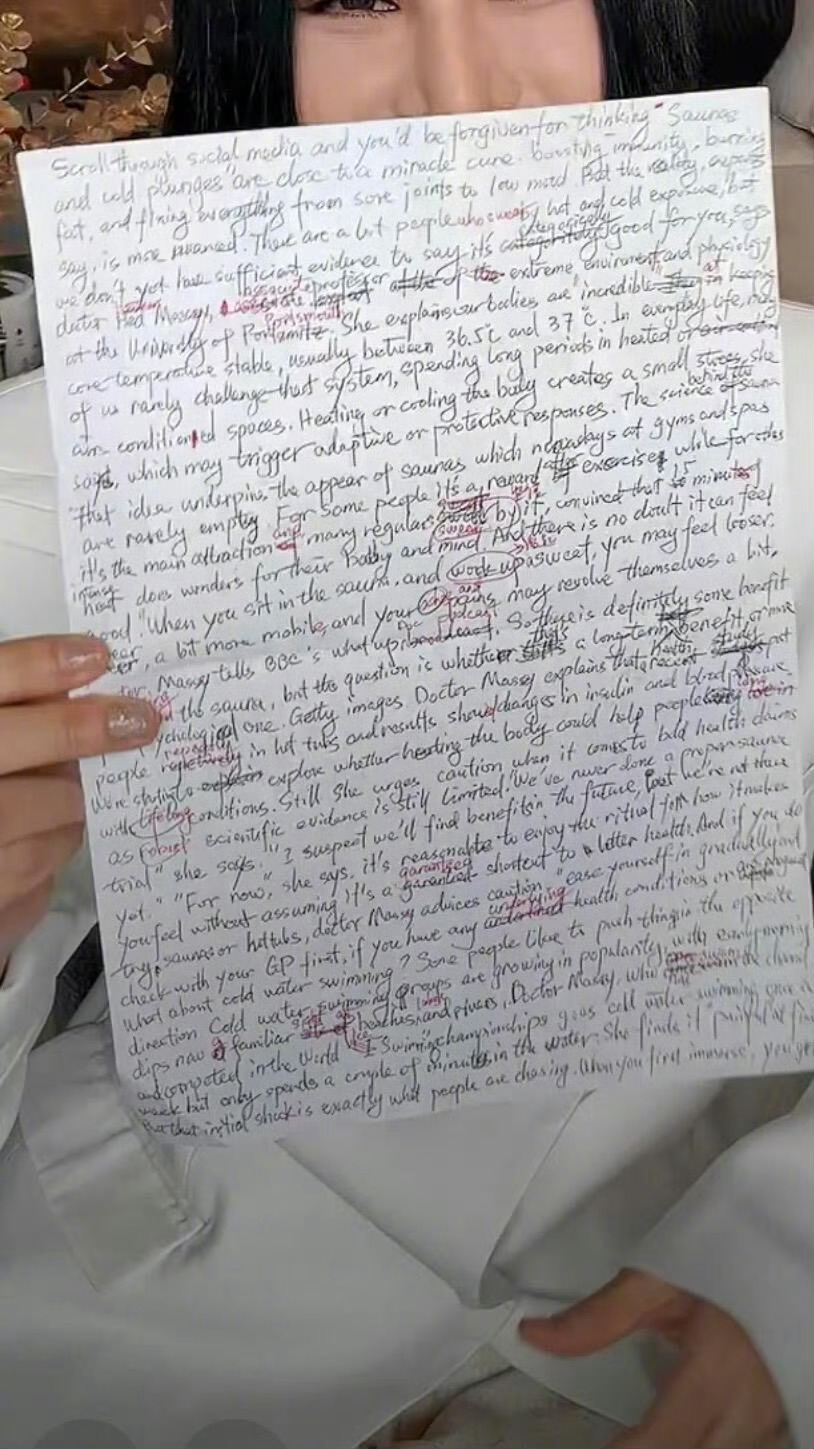 Scroll through social media and you'd be forgiven for thinking "Saunas
and cold plunges" are close to a miracle cure. boosting immunity, burning
fat, and fixing everything from sore joints to low mood. But the reality, experts
say, is more nuanced. There are a lot people who swear by hot and cold exposure, but
we don't yet have sufficient evidence to say it's categorically good for you, says
doctor Massey, associate professor of extreme environment and physiology
at the University of Portsmouth. She explains our bodies are "incredible" at keeping
core temperature stable, usually between 36.5°C and 37°C. In everyday life, many
of us rarely challenge that system, spending long periods in heated or
air conditioned spaces. Heating or cooling the body creates a small stress, she
says, which may trigger adaptive or protective responses. The science behind the sauna
"That idea underpins the appear of saunas which nowadays at gyms and spas
are rarely empty. For some people it's a reward after exercise, while for others
it's the main attraction and many regulars swear by it, convinced that 15 minutes
intense heat does wonders for their body and mind. And there is no doubt it can feel
good. "When you sit in the sauna, and work up a sweat, you may feel looser.
a bit more mobile, and your aches and pains may revolve themselves a bit,
Massey tells BBC's what up podcast. So there is definitely some benefit
the sauna, but the question is whether a long-term health benefit, or more
psychological one. Getty images Doctor Massey explains that recent study put
people repeatedly in hot tubs and results showed changes in insulin and blood pressure
We're starting to explore whether heating the body could help people
with lifelong conditions. Still She urges caution when it comes to bold health claims
as robust scientific evidence is still limited. "We've never done a proper sauna
trial" she says. "I suspect we'll find benefits in the future, but we're not there
yet." "For now," she says. it's reasonable to enjoy the ritual for how it makes
you feel without assuming it's a garanteed shortcut to better health. And if you do
try saunas or hot tubs, doctor Massey advices caution "ease yourself in gradually and
check with your GP first, if you have any underlying health conditions or are
what about cold water swimming? Some people like to push things in the opposite
direction Cold water swimming groups are growing in popularity, with early morning
dips now a familiar sight at beaches, and rivers. Doctor Massey, who
and competed in the World Ice Swimming championships goes cold water swimming
week but only spends a couple of minutes in the water. She finds it "painful
But that initial shock is exactly what people are chasing. When you first immerse, you get